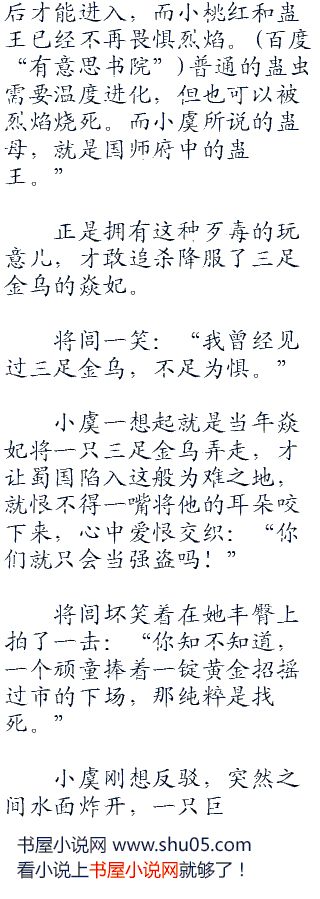 后才能进入，而小桃红和蛊
王已经不再畏惧烈焰。(百度
“有意思书院”)普通的蛊虫
需要温度进化，但也可以被
烈焰烧死。而小虞所说的蛊
母，就是国师府中的蛊
王。”
正是拥有这种歹毒的玩
意儿，才敢追杀降服了三足
金乌的焱妃。
将闾一笑：“我曾经见
过三足金乌，不足为惧。”
小虞一想起就是当年焱
妃将一只三足金乌弄走，才
让蜀国陷入这般为难之地，
就恨不得一嘴将他的耳朵咬
下来，心中爱恨交织：“你
们就只会当强盗吗！”
将闾坏笑着在她丰臀上
拍了一击：“你知不知道，
一个顽童捧着一锭黄金招摇
过市的下场，那纯粹是找
死。”
小虞刚想反驳，突然之
间水面炸开，一只巨
书屋小说网 www·shu05.com
看小说上书屋小说网就够了！